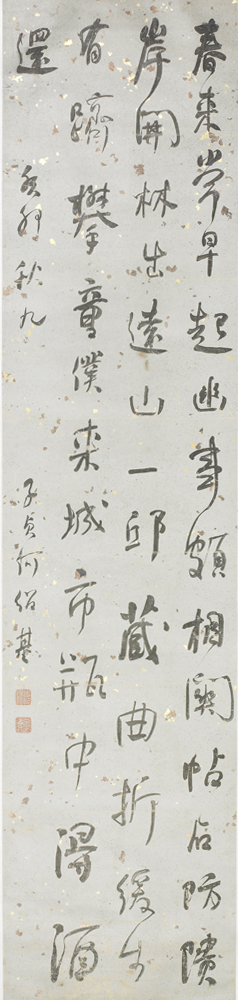 春来常早起幽事頗相關帖石防隤
岸開林出遠山一邱藏曲折緩步
有躋攀童僕来城市瓶中得酒
還
癸卯秋九
子貞何紹基